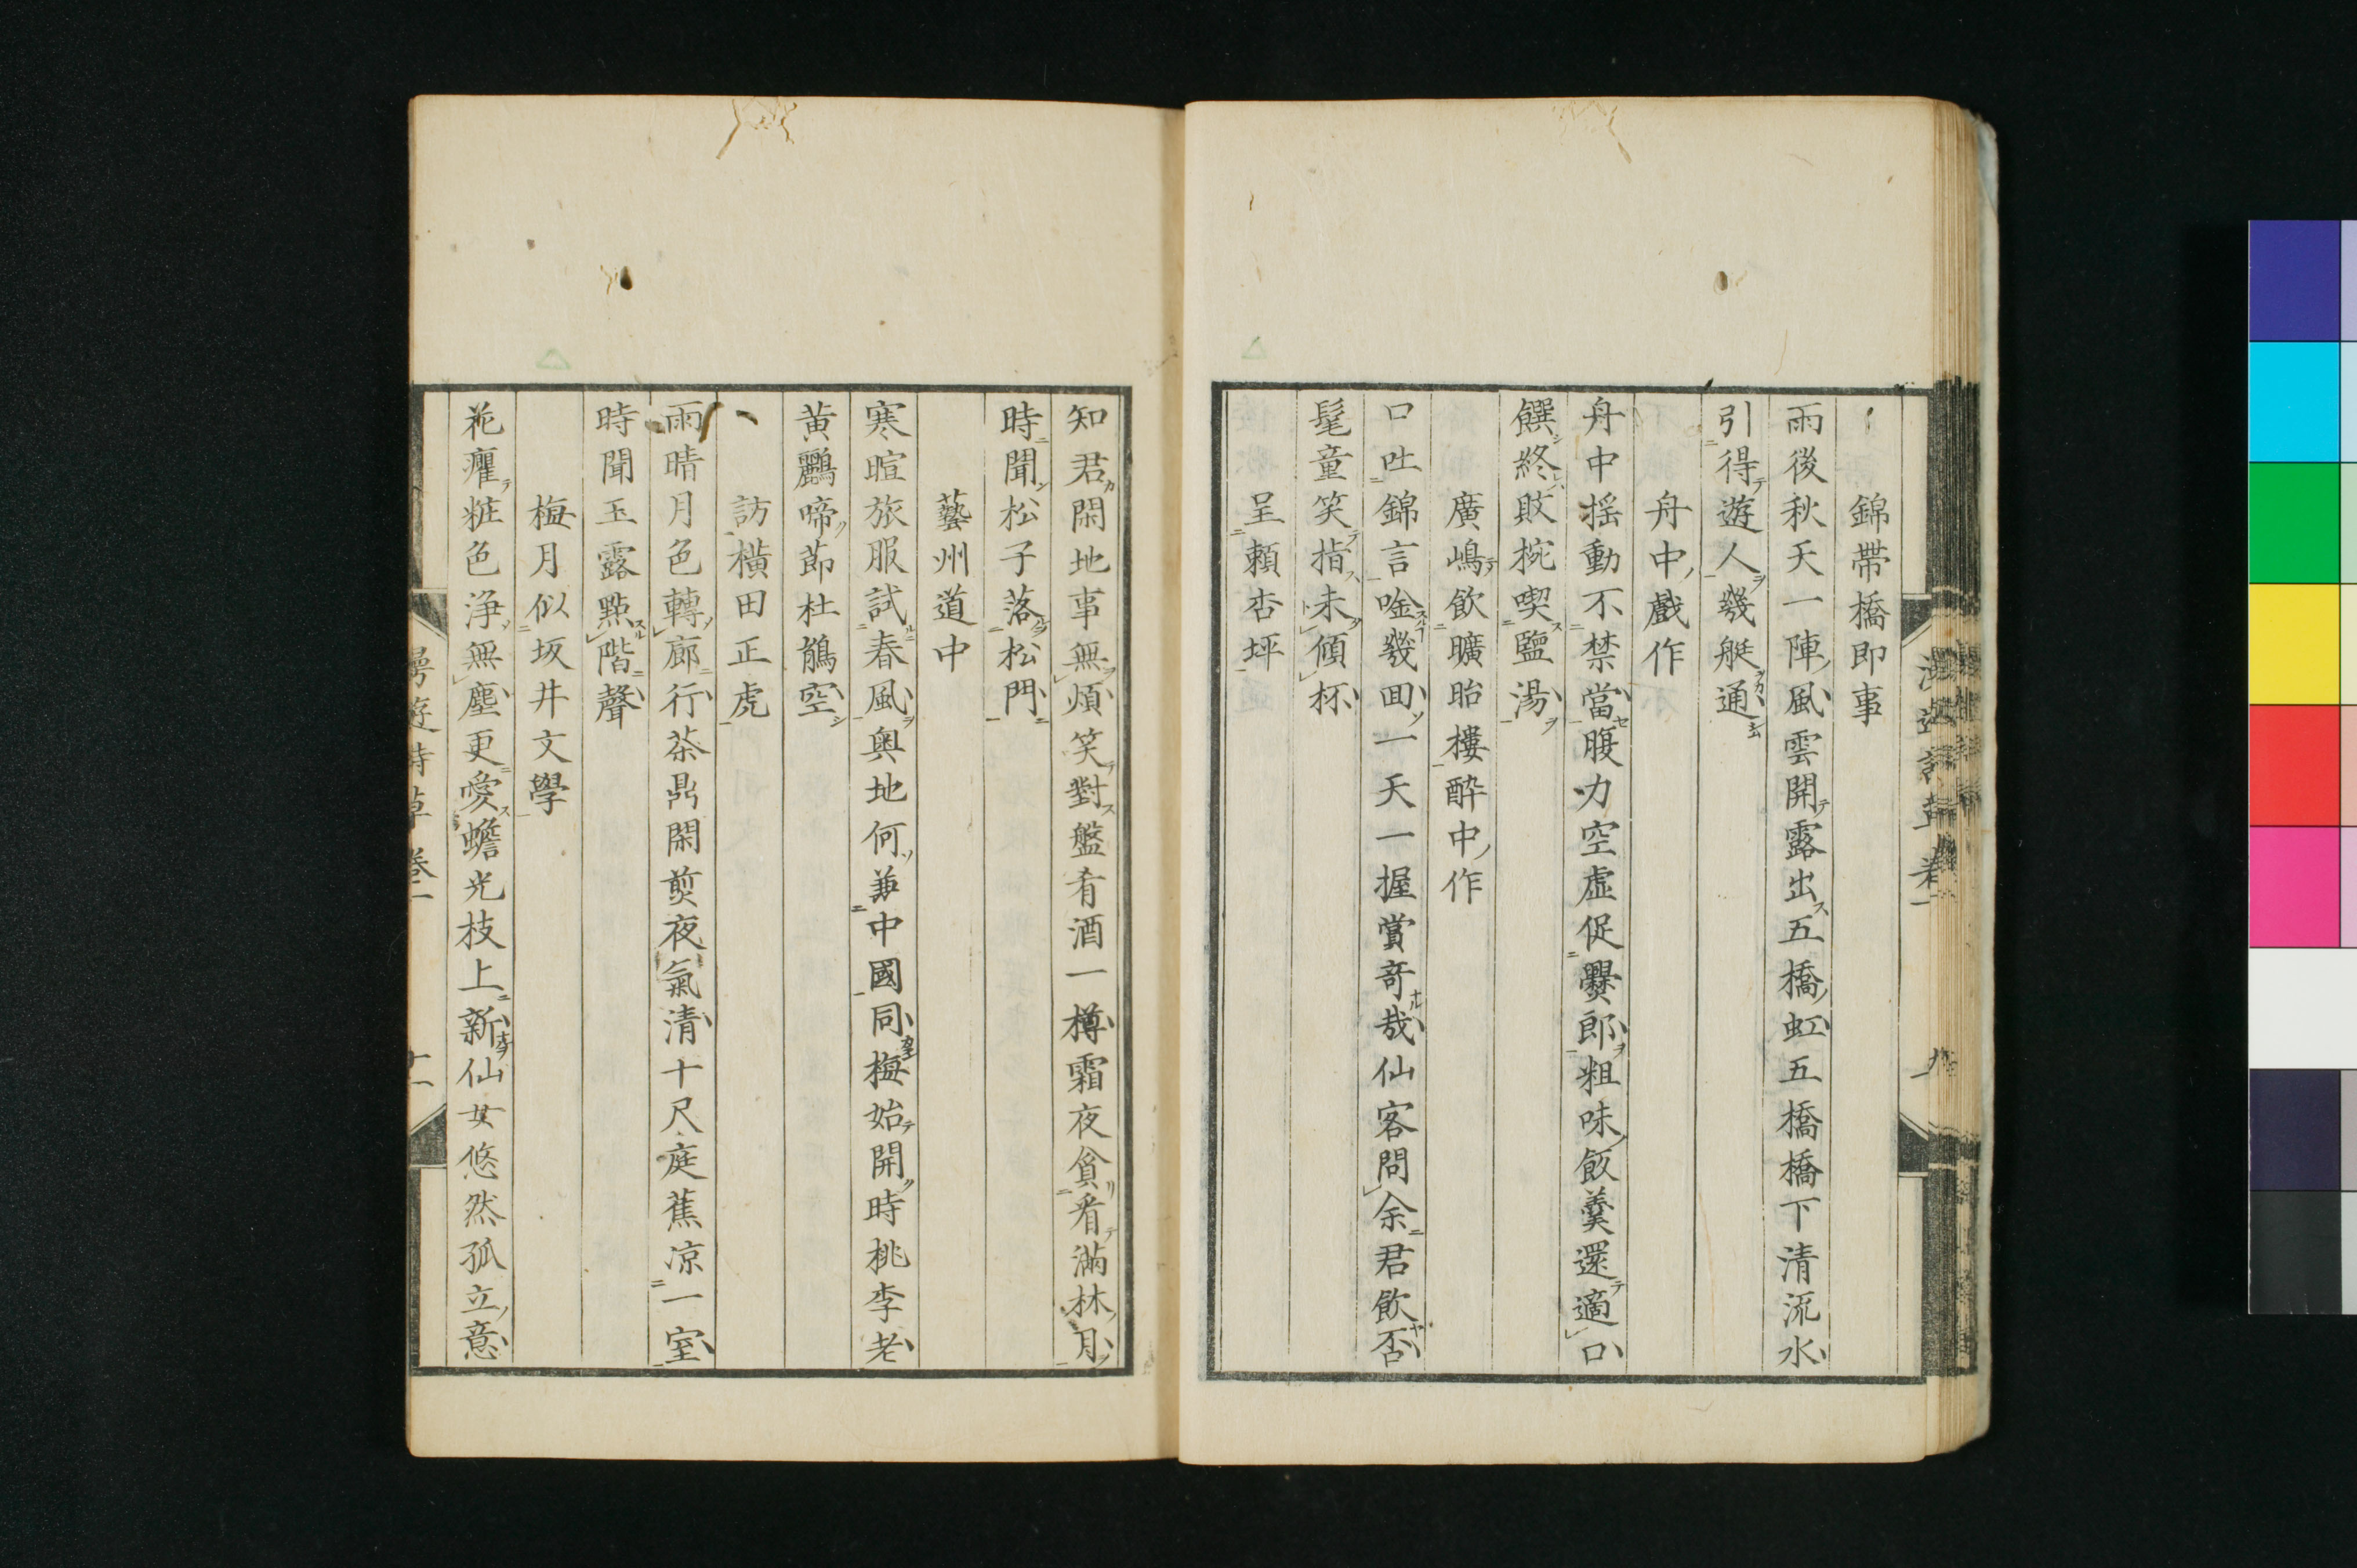 錦帶橋即事
雨後秋天一陣風雲開露出五橋虹五橋橋下清流水
引得遊人幾艇通
舟中戲作
舟中揺動不禁當腹力空虛促爨郎粗味飯羹還適口
饌終敗椀喫鹽湯
廣嶋飲曠眙樓醉中作
口吐錦言唫幾回一天一握賞奇哉仙客問余君飲否
髦童笑指未傾杯
呈賴杏坪
知君閑地事無煩笑對盤肴酒一樽霜夜貧看滿林月
時聞松子落松門
藝州道中
寒暄旅服試春風奥地何兼中國同梅始開時桃李老
黃鸝啼節杜鵑空
訪橫田正虎
雨晴月色轉廊行茶鼎閑煎夜氣清十尺庭蕉凉一室
時聞玉露點階聲
梅月似坂井文學
花癯粧色淨無塵更愛蟾光枝上新仙女悠然孤立意
漫遊詩草 卷一 十一